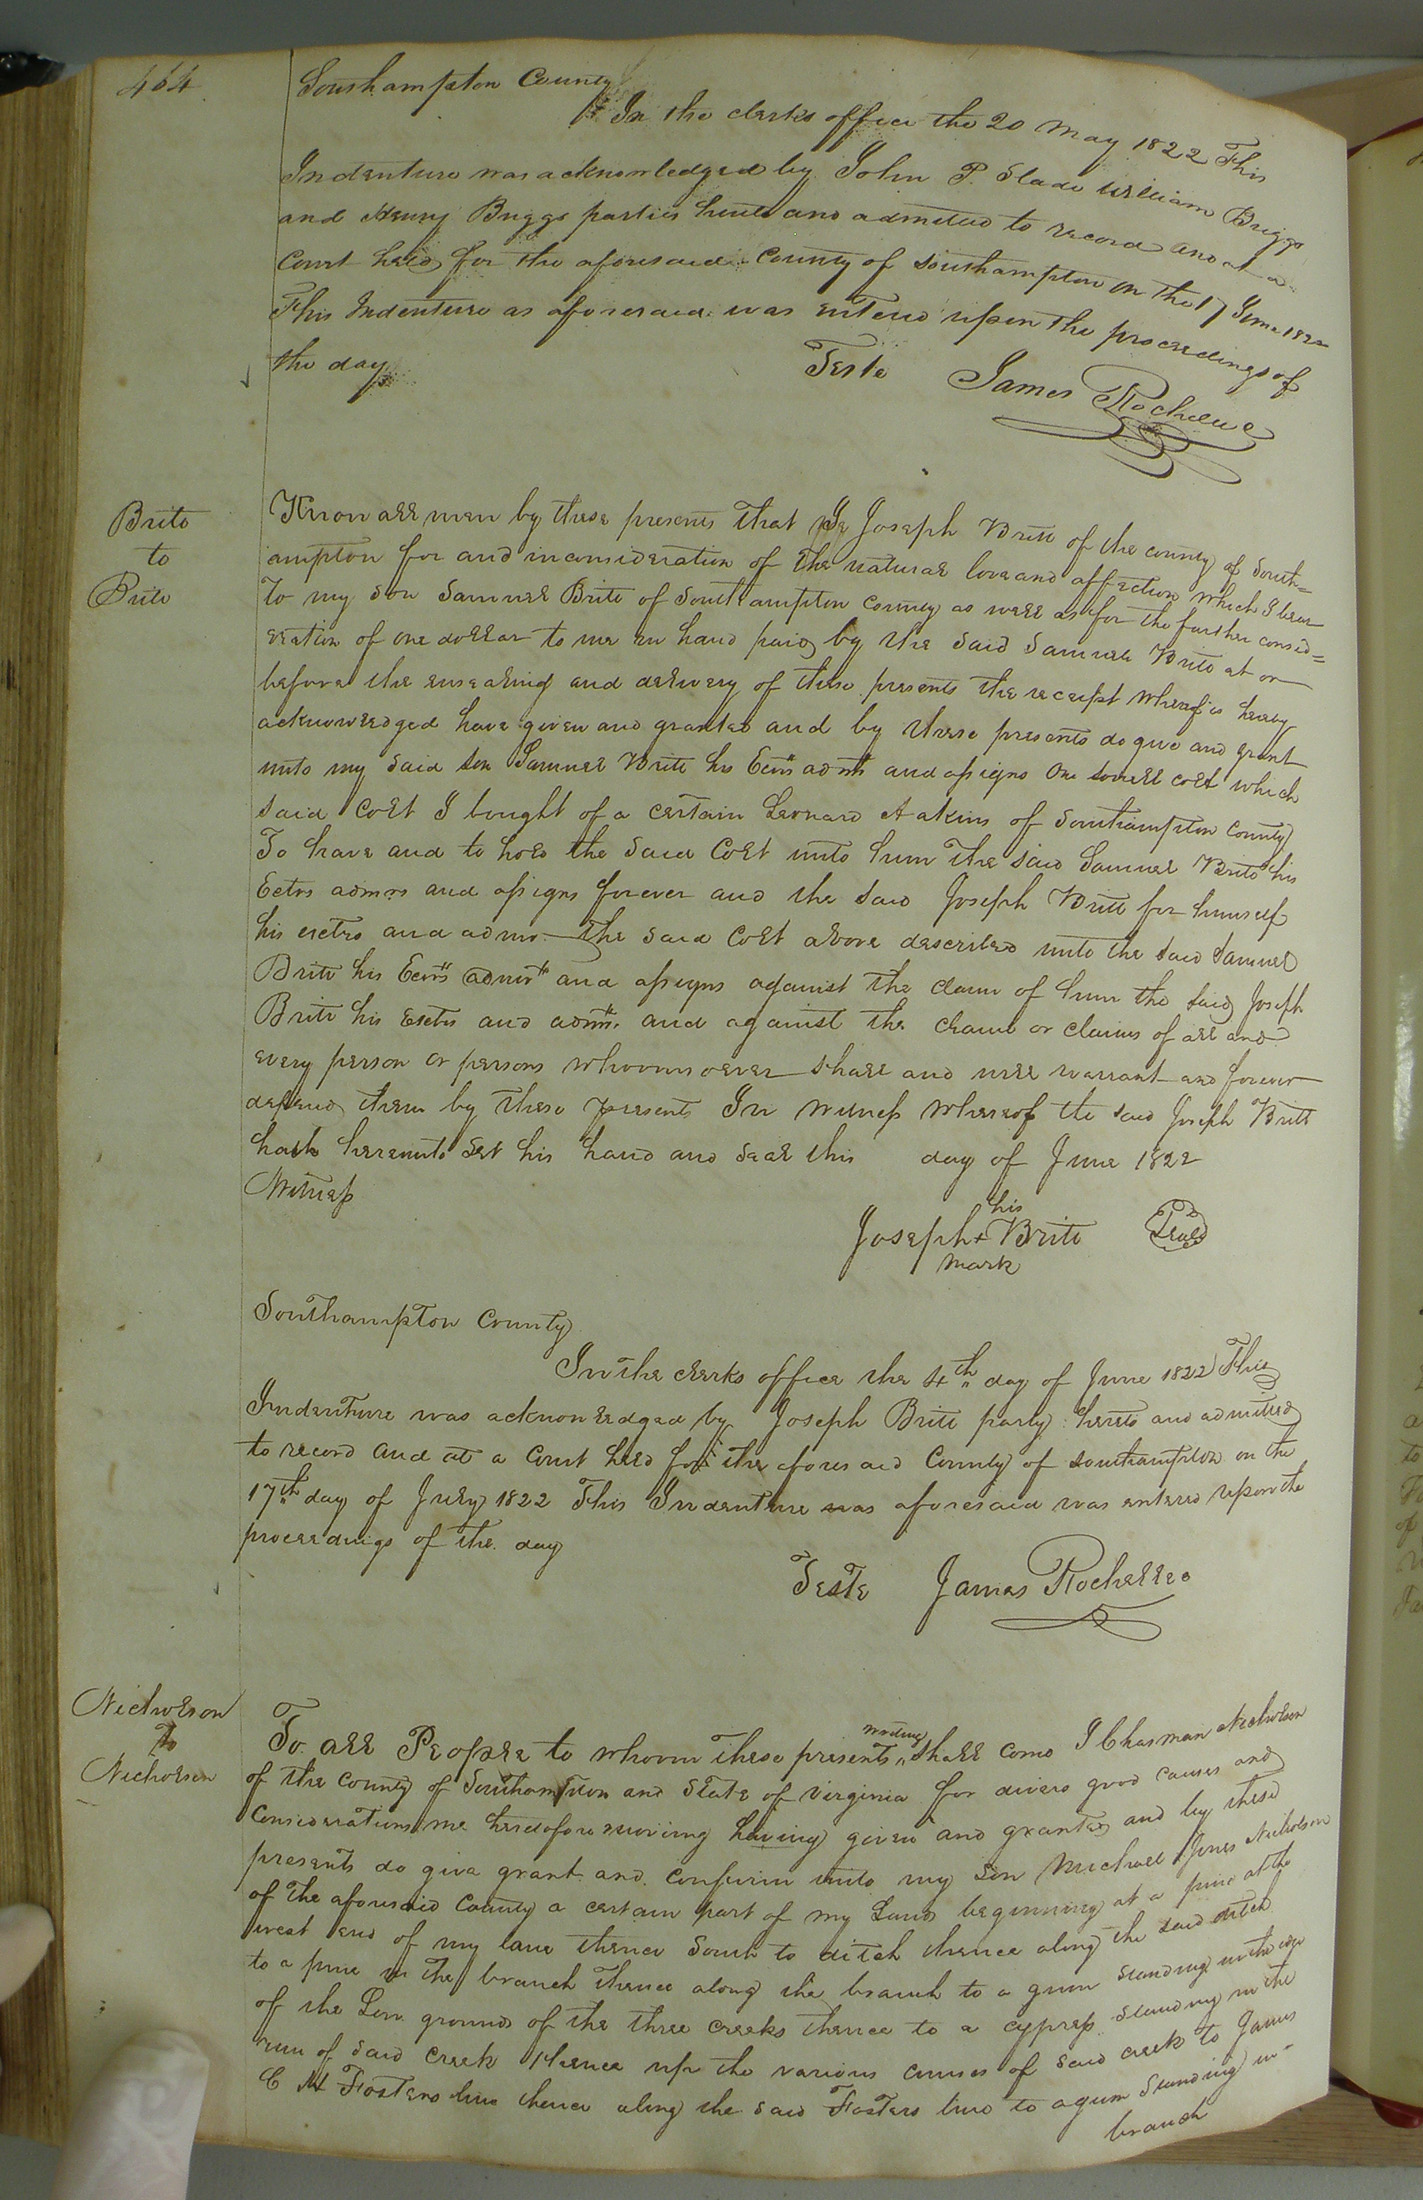 464
Southampton County
In the clerks office the 20 May 1822 This
Indenture was acknowledged by John P. Slade William Briggs
and Henry Briggs parties hereto and admitted to record and at a
Court held for the aforesaid County of Southampton on the 17 June 1822
This Indenture as aforesaid was entered upon the proceedings of
the day
Teste James Rochelle
Britt
to
Britt
Know all men by these presents that I Joseph Britt of the county of South=
ampton for and inconsideration of the natural love and affection which I bear
to my son Samuel Britt of Southampton County as well as for the further consid=
eration of one dollar to me in hand paid by the said Samuel Britt at or
before the ensealing and delivery of these presents the receipt whereof is hereby
acknowledged have given and granted and by these presents do give and grant
unto my said son Samuel Britt his Ecrs admrs and assigns One sorrell colt which
said colt I bought of a certain Leonard Atakins of Southampton County
To have and to hold the said Colt unto him the said Samuel Britt his
Ectrs admrs and assigns forever and the said Joseph Britt for himself
his exctrs and admrs the said Colt above described unto the said Samuel
Britt his Ecrs admrs and assigns against the claim of him the said Joseph
Britt his Exctrs and admrs. and against the claim or claims of all and
every person or persons whoomsoever shall and will warrant and forever
defend them by these presents In witness whereof the said Joseph Britt
hath hereunto set his hand and seal this day of June 1822
Witness
his
Joseph + Britt Seal
mark
Southampton County
In the clerks office the 4th day of June 1822 This
Indenture was acknowledged by Joseph Britt party hereto and admitted
to record and at a Court held for the aforesaid County of Southampton on the
17th day of July 1822 This Indenture was aforesaid was entered upon the
proceedings of the day
Teste James Rochelle
Nicholson
To
Nicholson
To all People to whoom these presents writing shall come I Charman Nicholson
of the County of Southampton and State of Virginia for divers good causes and
Considerations me heretofore moving having given and granted and by these
presents do give grant and confirm unto my son Michael Jones Nicholson
of the aforesaid County a certain part of my Land beginning at a pine at the
west end of my lane thence South to ditch thence along the said ditch
to a pine in the branch thence along the branch to a gum standing in the edge
of the Low grounds of the three creeks thence to a cypress standing in the
run of said creek thence up the various courses of said creek to James
C N Fosters line thence along the said Fosters line to a gum standing in
branch